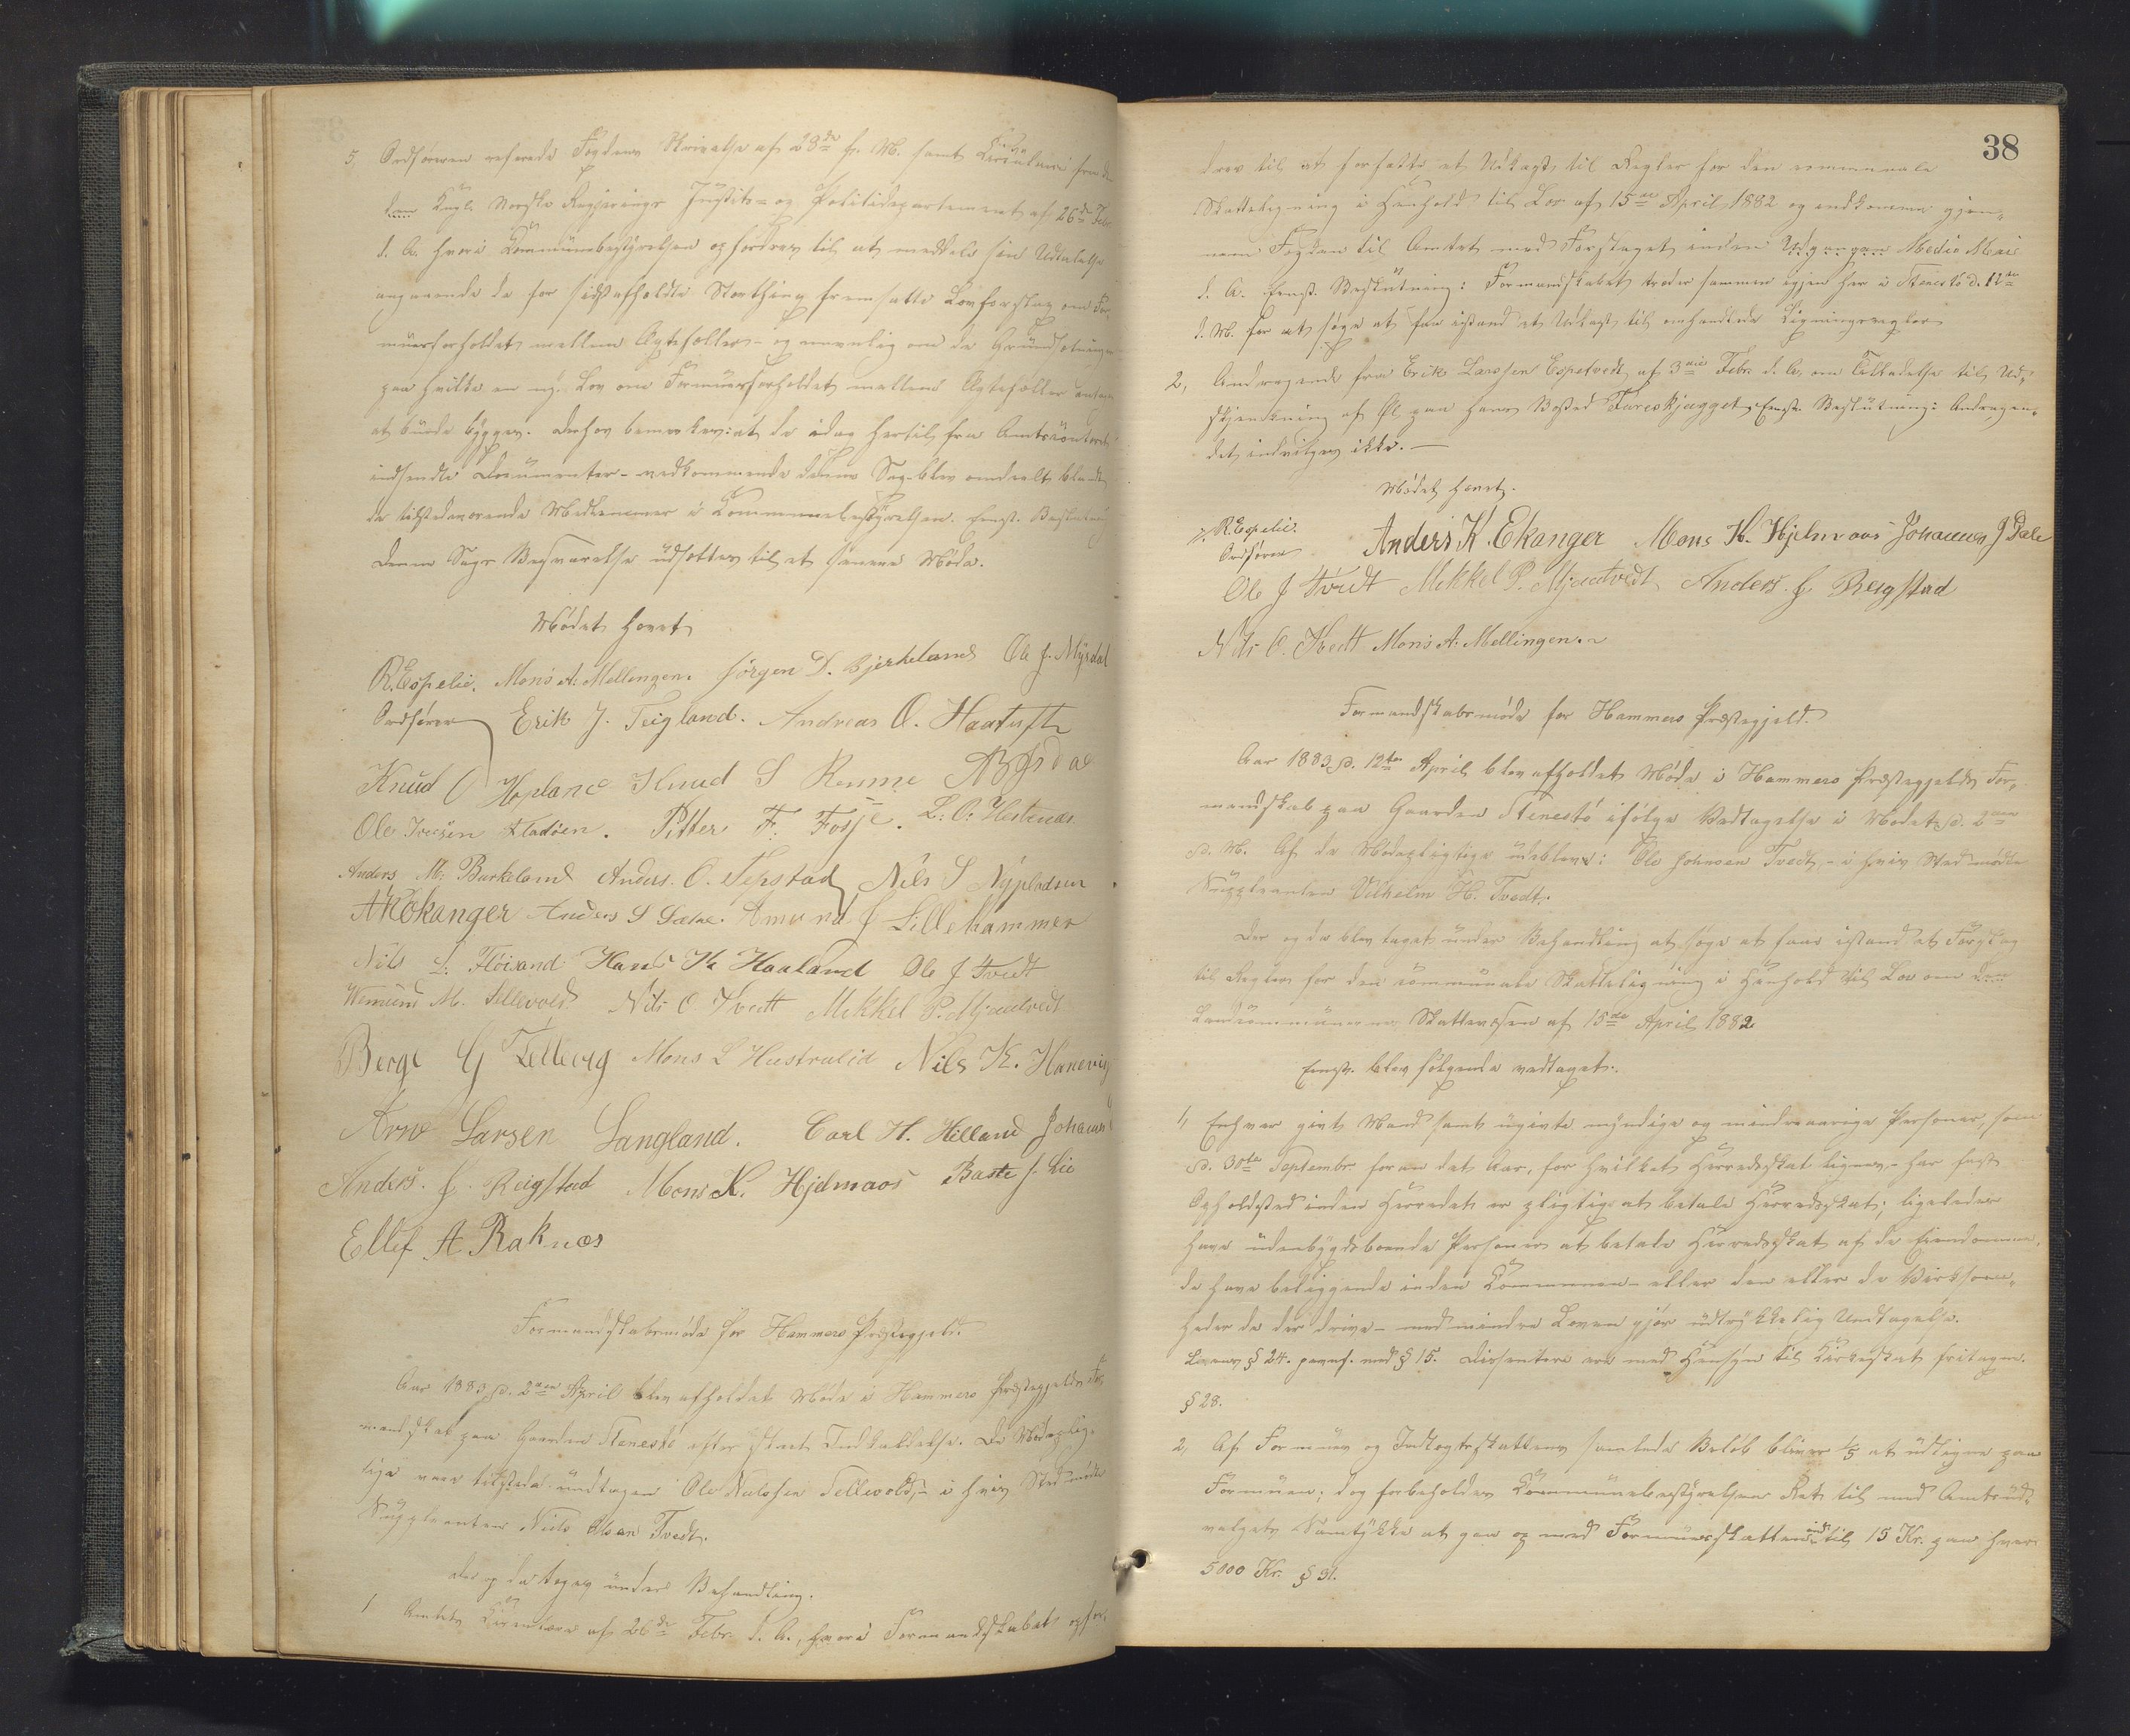 5, Ordføreren referede Fogdens Skrivelse af 28de f. M. samt Cirkulære fra
den Kngl. Norske Regjerings Justits- og Politidepartement af 26de Febr.
d. A. hvori Kommunebestyrelsen opfordres til at meddele sin Udtalelse
angaaende de for sidstafholdte Storthing fremsatte Lovforslag om For-
muesforholdet mellem Ægtefæller - og navnlig om de Grundsætninger
paa hvilke en ny Lov om Formuesforholdet mellem Ægtefæller
at burde bygges. Derhos bemærkes: at de idag hertil fra Amtskontoret
indsendte Documenter - vedkommende denne Sag - blev omdeelt blandt
de tilstedeværende Medlemmer i Kommunebestyrelsen. Enst. Beslutning
Denne Sags Besvarelse udsættes til et senere Møde.
Mødet hævet
R. Espelie. Mons A. Mellingen. Jørgen D. Bjerkeland Ole J. Myrdal
Ordfører Erik J. Teigland. Andreas O. Haatuft
Knud O Hopland Knud S Romme
Ole Iversen Kladsen. Pitter F. Fosse.
Anders M. Burkeland Anders. O. Sepstad Nils S Nypladsen
A K Ekanger Anders S Sætre. Amund J Lillehammer
Nils L. Flöisand Hans K Haaland Ole J Tvedt
M. Tellevold Nils O Tvedt Mekkel P. Mjaatvedt
Berge G Tellevig Mons L Hustrulid Nils K. Hanevig
Arne Larsen Langland. Carl H. Hilland Johannes
Anders. J. Reigstad Mons K. Hjelmaas Baste J. Lie
Ellef A Raknæs
Formandskabsmøde for Hammers Præstegjeld.
Aar 1883 d. 2den April blev afholdet Møde i Hammers Præstegjelds For-
mandskab paa Gaarden Stenestø efter skeet Indkaldelse. De Mødeplig-
tige vare tilstede undtagen Ole Nielssen Tellevold, - i hvis Sted mødte
Suppleanten Niels Olsen Tvedt.
Der og da toges under Behandling.
1 Amtets Cirkulære af 26de Febr. d. A., hvori Formandskabet opfor-
38
dres til at forfatte et Udkast til Regler for den communale
Skatteligning i Henhold til Lov af 15de April 1882 og indkomme gjen-
nem Fogden til Amtet med Forslaget inden Udgangen Medio Mai
d. A. Enst. Beslutning: Formandskabet træder sammen igjen her i Stenestø d. 12te
d. M. for at søge at faa istand et Udkast til omhandlede Ligningsregler
2, Andragende fra Erik Larssen Espetvedt af 3die Febr. d. A. om Tilladelse til Ud-
skjenkning af Øl paa hans Bosted Fureskjægget. Enst. Beslutning: Andragen-
det indvilges ikke. -
Mødet hævet.
R. Espelie.
Ordfører Anders K. Ekanger Mons K. Hjelmaas Johannes J Dale
Ole J Tvedt Mekkel P. Mjaatvedt Anders. J. Reigstad
Nils O. Tvedt Mons A. Mellingen.
Formandskabsmøde for Hammers Præstegjeld.
Aar 1883 d. 12te April blev afholdet Møde i Hammers Præstegjelds For-
mandskab paa Gaarden Stenestø ifølge Vedtagelse i Mødet d. 2den
d. M. Af de Mødepligtige udeblev: Ole Johnsen Tvedt, - i hvis Sted mødte
Suppleanten Vilhelm H. Tvedt.
Der og da blev taget under Behandling at søge at faa istand et Forslag
til Regler for den communale Skatteligning i Henhold til Lov om den
Landcommunerne Skattevæsen af 15de April 1882
Enst. blev følgende vedtaget:
1, Enhver givt Mand samt ugivte myndige og mindreaarige Personer, som
d. 30te Septembr foran det Aar, for hvilket Herredsskat lignes, - har fast
Opholdssted inden Herredet er pligtig at betale Herredsskat; ligeledes
have udenbygdsboende Personer at betale Herredsskat af de Eiendomme,
de have beliggende inden Kommunen - eller den eller de Virksom-
heder de der drive - med mindre Loven gjør udtrykkelig Undtagelse.
Lovens § 24. jevnf. med § 15. Dissentere ere med Hensyn til Kirkeskat fritagne.
§ 28.
2, Af Formues og Indtægtsskattens samlede Beløb bliver 1/5 at udligne paa
Formuen; dog forbeholdes Kommunebestyrelsen Ret til med Amtsud-
valgets Samtykke at gaa op med Formuesskatten indtil 15 Kr. paa hver
5000 Kr. § 31.